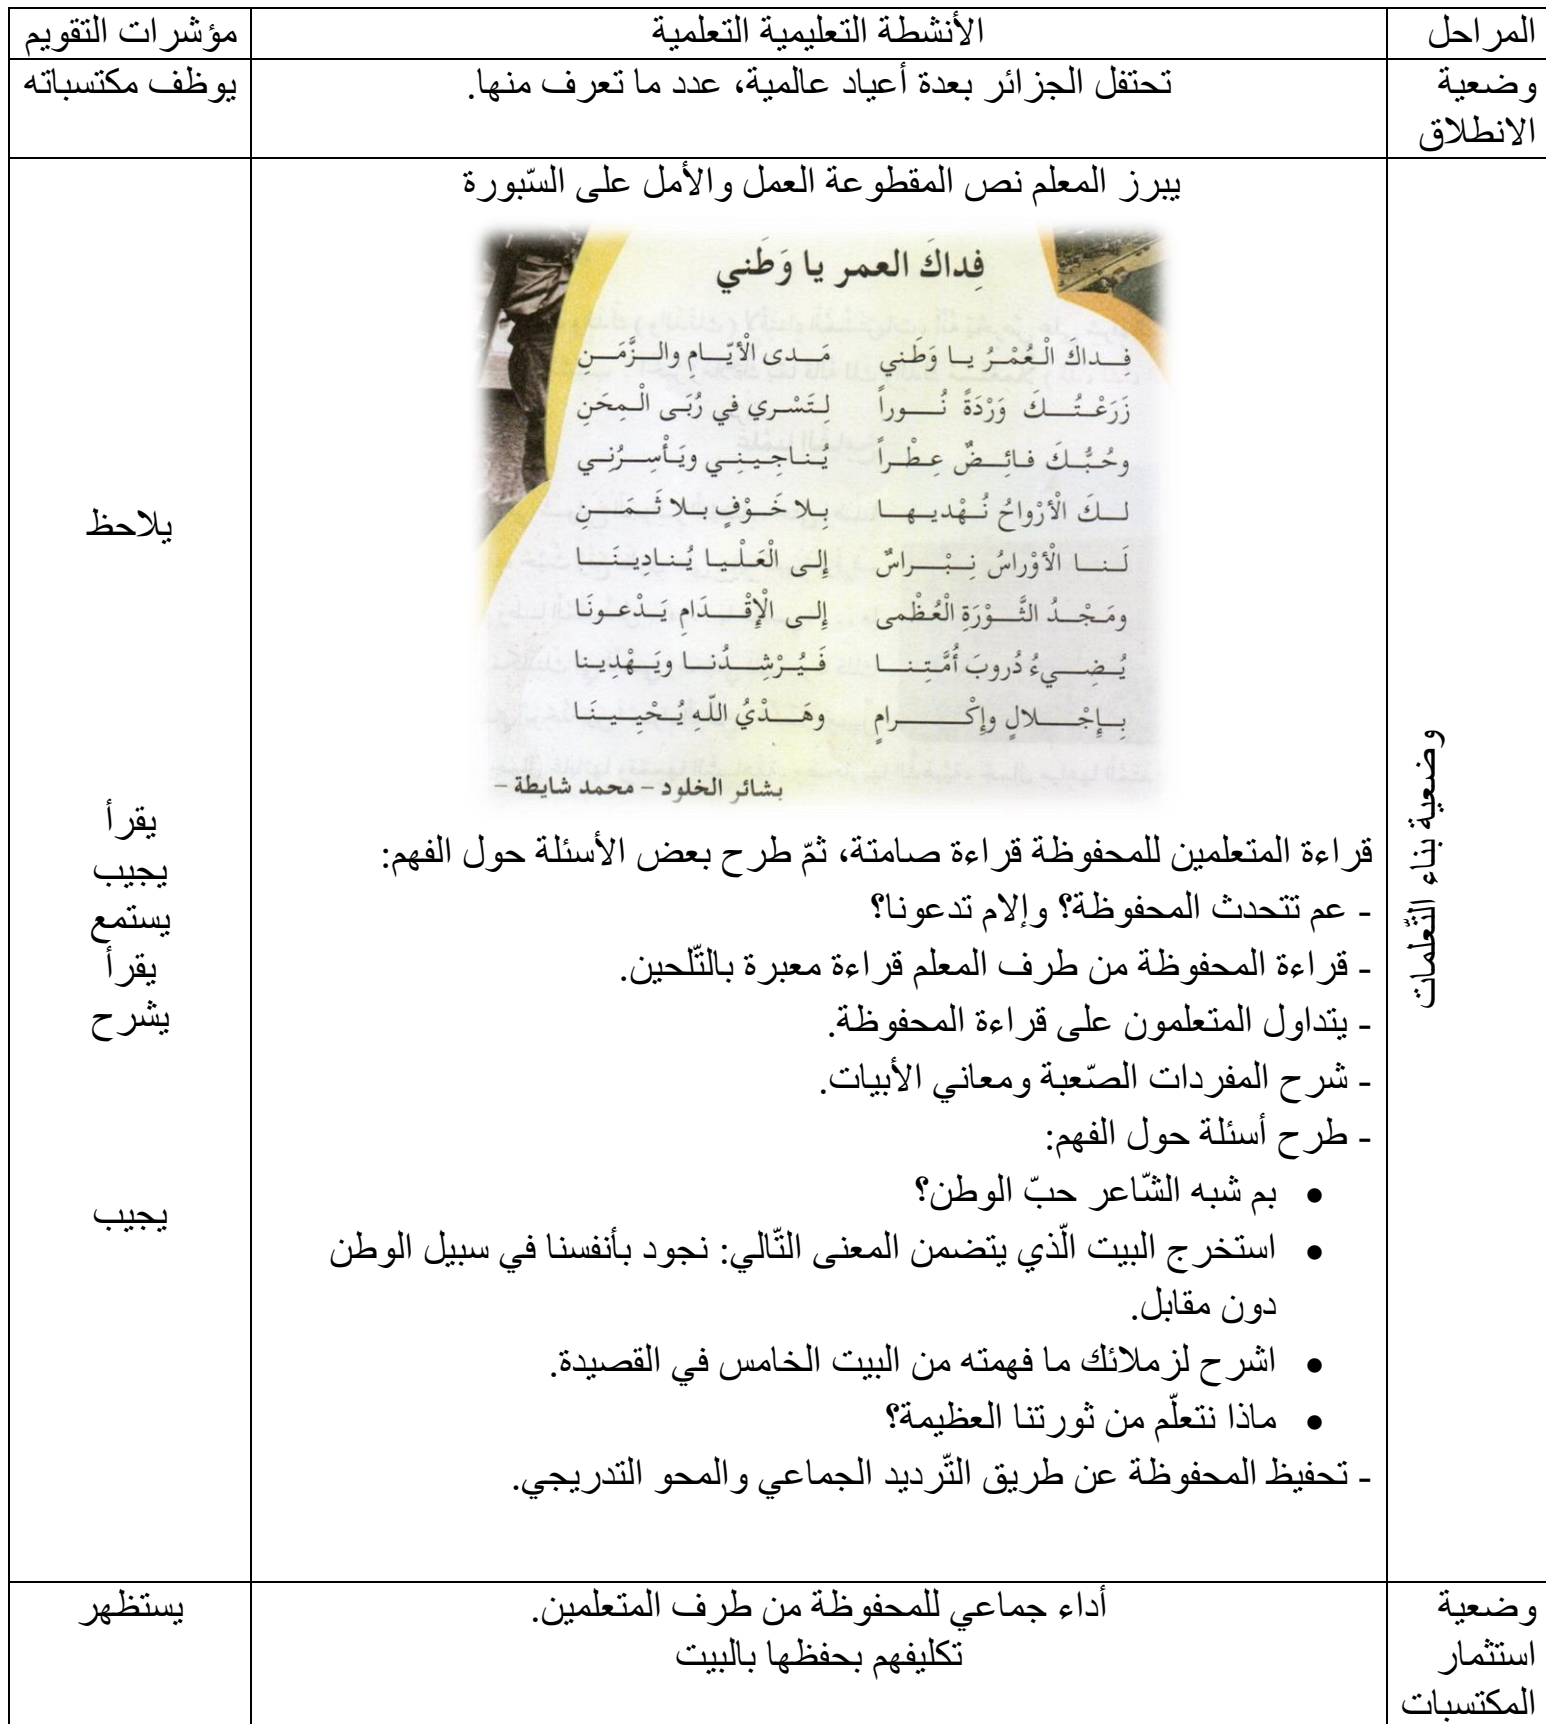 المراحل	الأنشطة التعليمية التعلمية	مؤشرات التقويم
وضعية
الانطلاق
تحتفل الجزائر بعدة أعياد عالمية، عدد ما تعرف منها.
يوظف مكتسباته
وضعية بناء التّعلمات
يبرز المعلم نص المقطوعة العمل والأمل على السّبورة
فِداكَ العمر يا وَطَني
فِداكَ الْعُمْرُ يا وَطَني	مَدى الْأيّامِ والزَّمَنِ
زَرَعْتُكَ وَرْدَةً نُوراً	لِتَسْري في رُبَى الْمِحَنِ
وحُبُّكَ فائِضٌ عِطْراً	يُناجِينِي ويَأْسِرُنِي
لكَ الْأرْواحُ نُهْديها	بِلا خَوْفٍ بلا ثَمَنِ
لَنا الْأوْراسُ نِبْراسٌ	إِلى الْعَلْيا يُنادِينَا
ومَجْدُ الثَّوْرَةِ الْعُظْمى	إِلى الْإِقْدَامِ يَدْعونَا
يُضِيءُ دُروبَ أُمَّتِنا	فَيُرْشِدُنا ويَهْدِينا
بِإِجْلالٍ وإِكْرامٍ	وهَدْيُ اللّهِ يُحْيِينَا
بشائر الخلود – محمد شايطة –
قراءة المتعلمين للمحفوظة قراءة صامتة، ثمّ طرح بعض الأسئلة حول الفهم:
- عم تتحدث المحفوظة؟ وإلام تدعونا؟
- قراءة المحفوظة من طرف المعلم قراءة معبرة بالتّلحين.
- يتداول المتعلمون على قراءة المحفوظة.
- شرح المفردات الصّعبة ومعاني الأبيات.
- طرح أسئلة حول الفهم:
• بم شبه الشّاعر حبّ الوطن؟
• استخرج البيت الّذي يتضمن المعنى التّالي: نجود بأنفسنا في سبيل الوطن
دون مقابل.
• اشرح لزملائك ما فهمته من البيت الخامس في القصيدة.
• ماذا نتعلّم من ثورتنا العظيمة؟
- تحفيظ المحفوظة عن طريق التّرديد الجماعي والمحو التدريجي.
يلاحظ
يقرأ
يجيب
يستمع
يقرأ
يشرح
يجيب
وضعية
استثمار
المكتسبات
أداء جماعي للمحفوظة من طرف المتعلمين.
تكليفهم بحفظها بالبيت
يستظهر